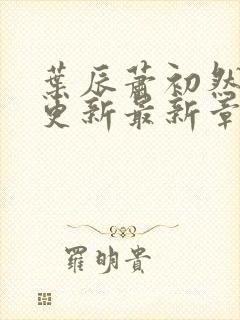 葉辰蕭初然
更新最新章
羅明貴